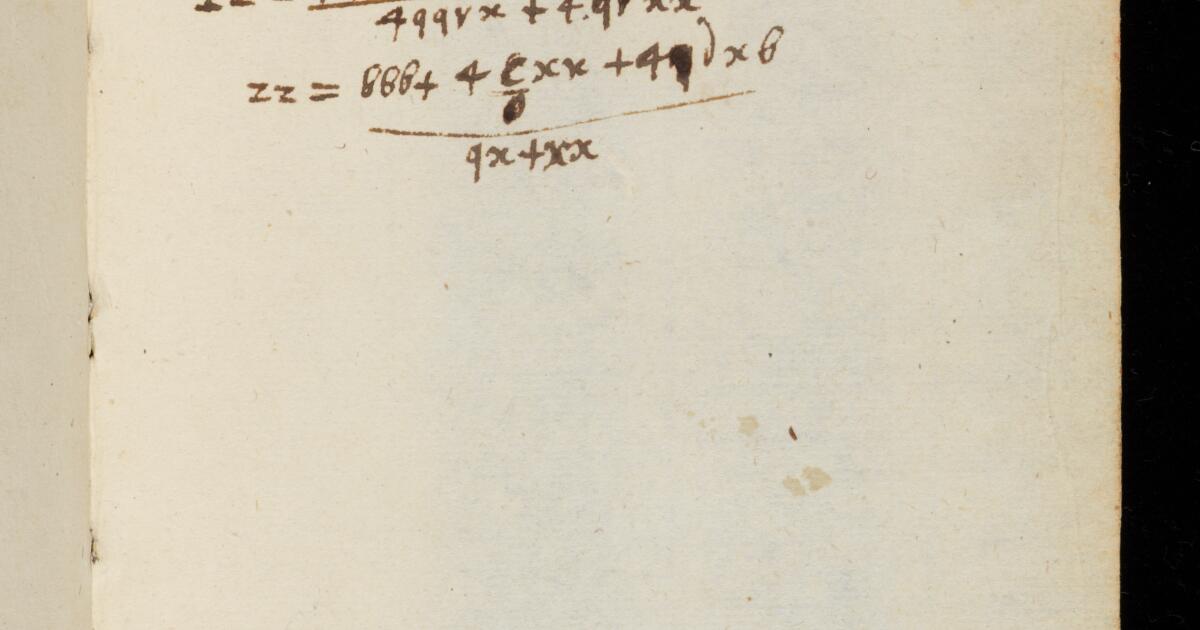 4qqrx + 4qrxx
zz = bbb+ 4 c xx + 4q) x b
qx+xx